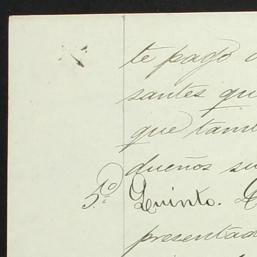 te pago
santes que
que tam
dueños su
5º Quinto.
presentad